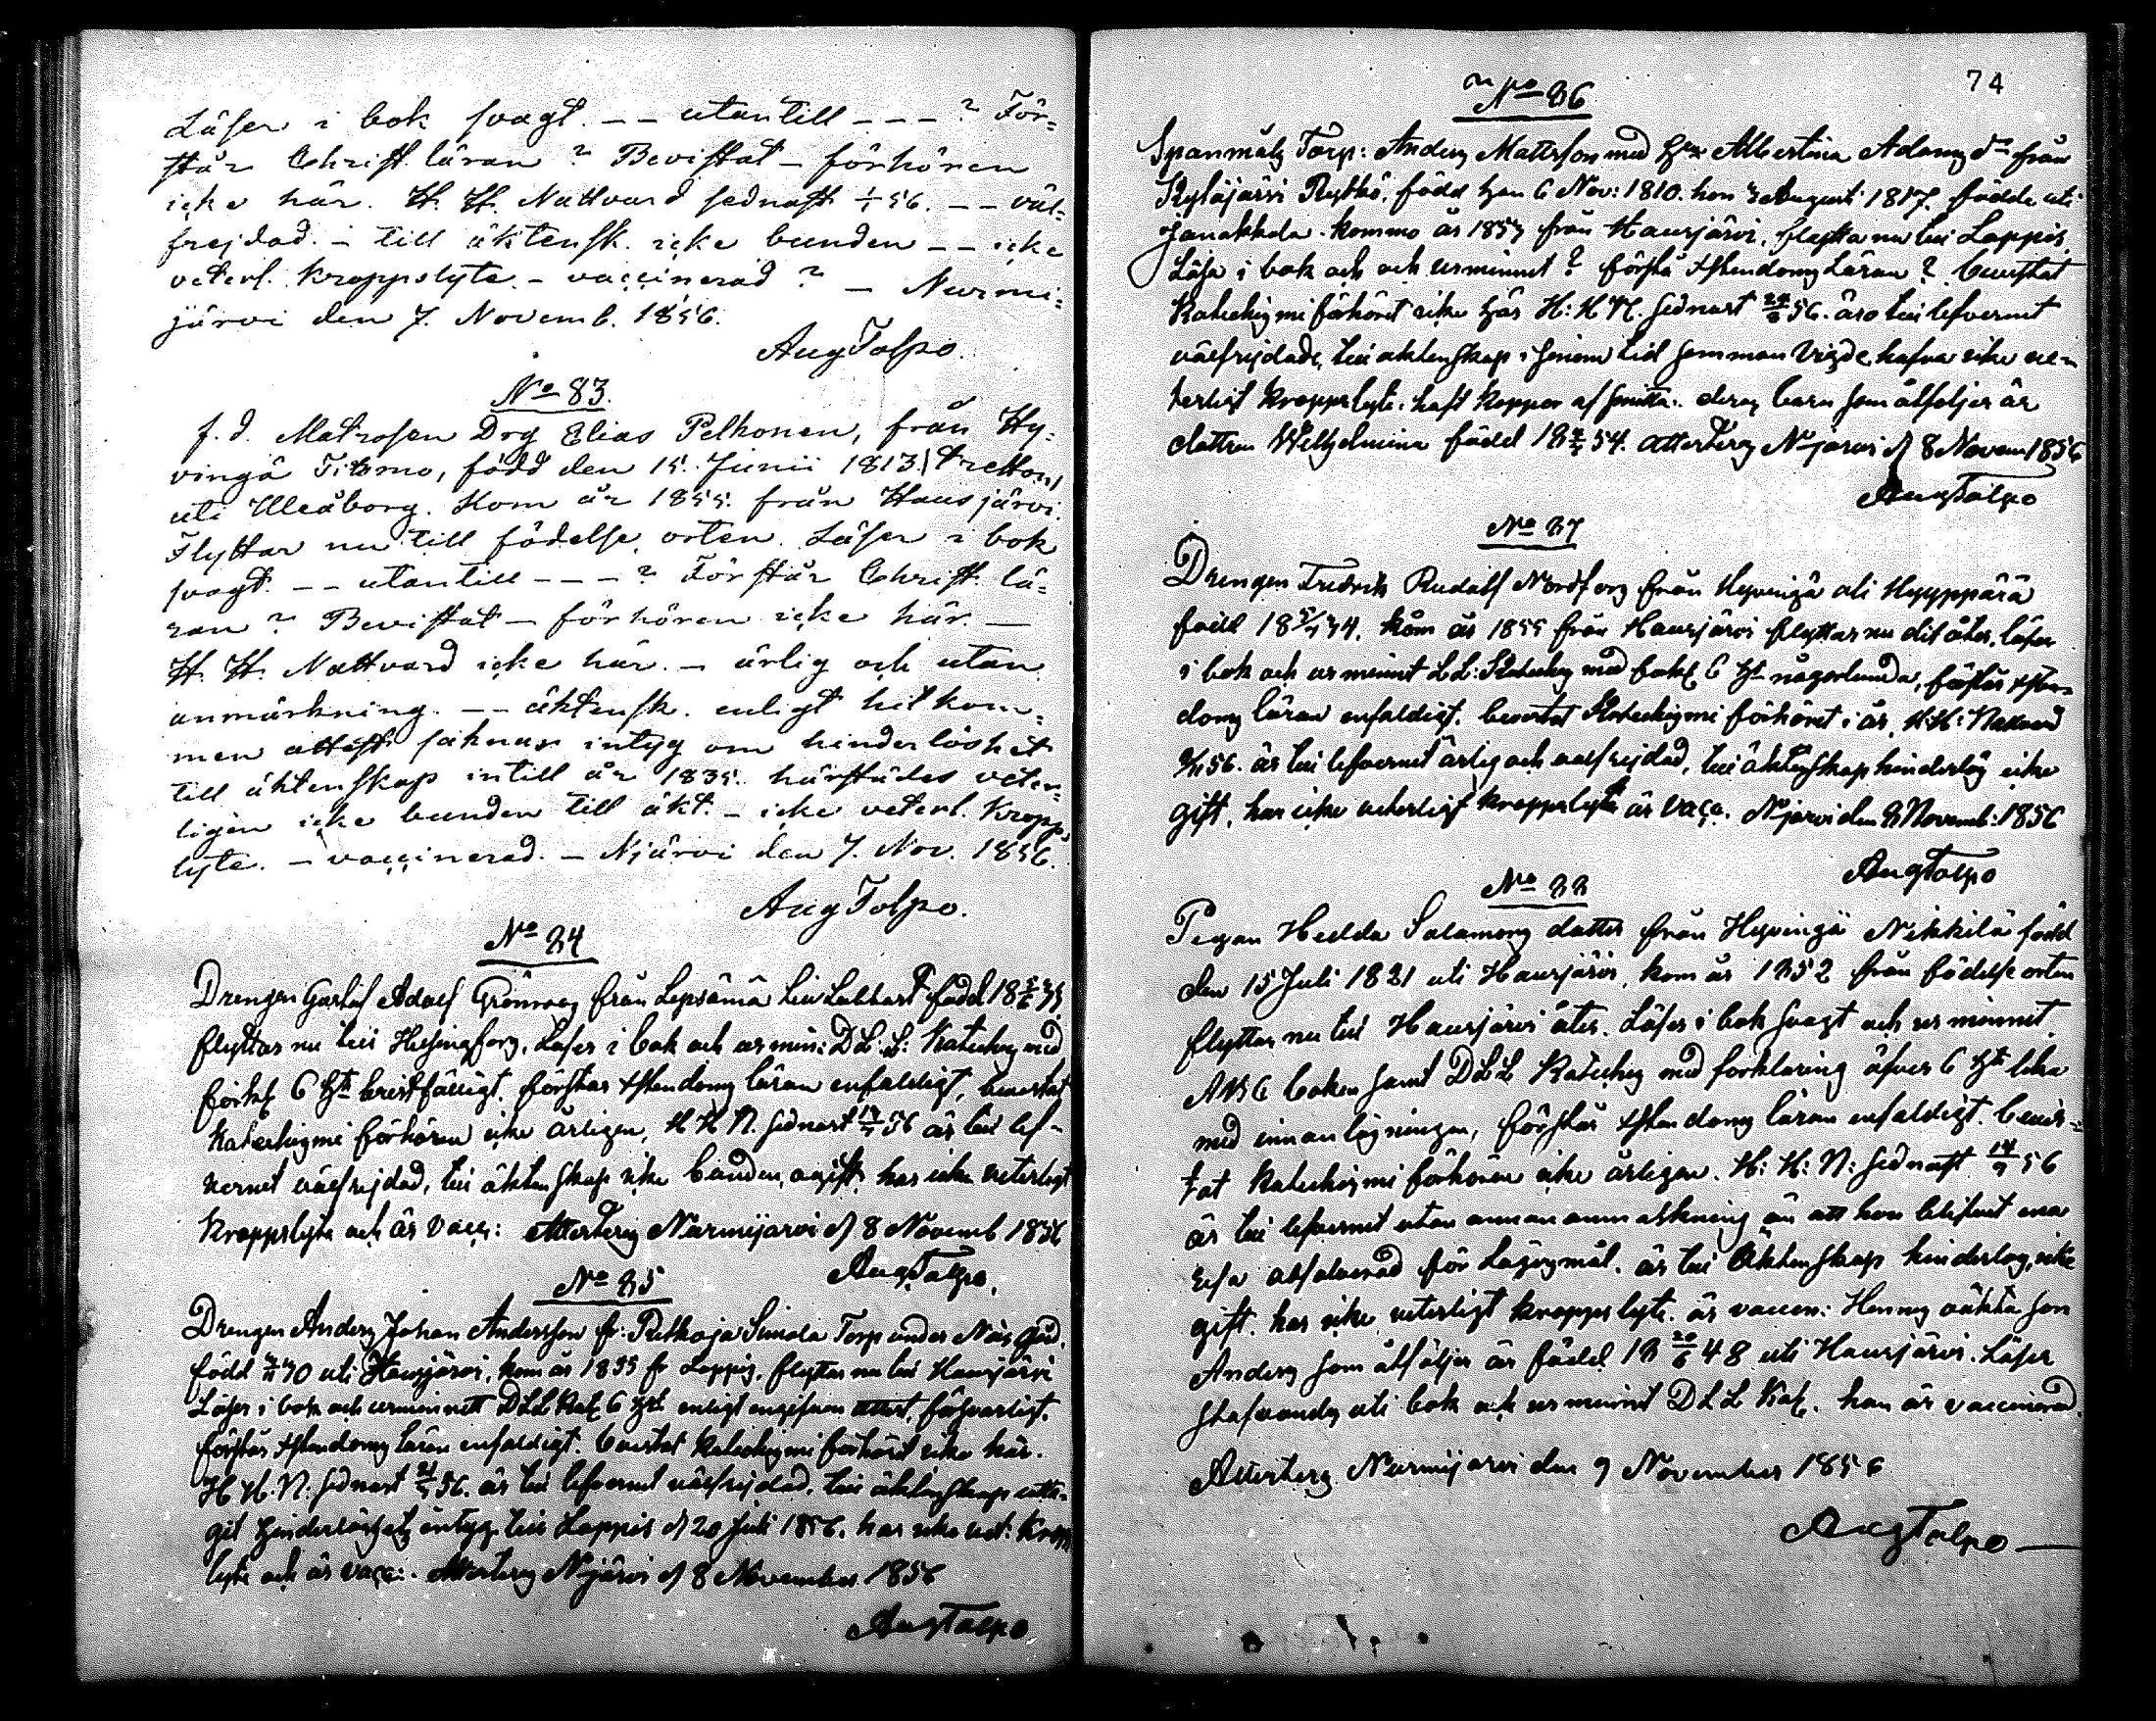 Läser i bok svagt. -- utantill --- ? För=
står Christ. läran ? Bevistat - förhören
icke här. H. H. Nattvard sednast 1/1 56. -- väl=
frejdad. - till äktensk. icke bunden -- icke
veterl. kroppslyte. - vaccinerad ? - Nurmi=
järvi den 7. Novemb. 1856.
Aug Tolpo.
No 83.
f. d. Matrosen Drg Elias Pelhonen, från Hy=
vingä, född den 15. Junii 1813 (tretton)
uti Uleåborg. Kom år 1855. från Hausjärvi.
Flyttar nu till födelse orten. Läser i bok
svagt. -- utantill --- ? Förstår Christ. lä=
ran ? Bevistat - förhören icke här. -
H. H. Nattvard icke här. - ärlig och utan
anmärkning. -- äktensk. enligt hit kom=
men attest saknar intyg om hinderlöshet
till äktenskap intill år 1835. härstädes veter=
ligen icke bunden till äkt. - icke veterl. kropps
lyte. - vaccinerad. - Njärvi den 7. Nov. 1856.
Aug Tolpo.
No 84
Drengen Gustaf Adolf Grönroos från Lepsämä född 18
flyttar nu till Helsingfors, Läser i bok och ur min: D L. L: Kateches med
förkl 6 Hst bristfälligt. förstår Xstendoms läran enfaldigt, bevistat
Katechismi förhören icke årligen, H H N. sednast 56 är till lef=
vernet välfrejdad, till äktenskap icke bunden, ogift har icke veterligt
kroppslyte och är vacc: Attesteras Nurmijärvi d 8 Novemb 1856
Aug Tolpo.
No 85
Drengen Anders Johan Andersson fr: Ridkoja Simola Torp under Näs Gård.
född 30 uti Hausjärvi, kom år 1855 fr Loppis, flyttar nu till Hausjärvi
Läser i bok och ur minnet D L L Kat 6 Hst enligt angifven attest, försvarligt.
förstår Xstendoms läran enfaldigt. bevistat katechismi förhöret icke här.
H H. N: sednast 56. är till lefvernet välfrejdad, till äktenskap utta=
git hinderlöshets intyg till Loppis d 20 Juli 1856. har icke vet: kropps
lyte och är vacc:. Attesteras Njärvi d 8 November 1856
Aug Tolpo
74
No 86
Spanmåls Torp: Anders Mattsson med Hu Albertina Adams dr från
Kyläjärvi Rytkö, född han 6 Nov: 1810. hon Augusti 1817. födde uti
Janakkala. kommo år 1853 från Hausjärvi, flytta nu till Loppis,
Läsa i bok och ur minnet ? förstå Xstendoms Läran ? bevistat
Katechismi förhöret icke här H: H N. sednast 56. äro till lefvernet
välfrejdade, till äktenskap i sinom tid samman Vigde, hafva icke ve=
terligt kroppslyte. haft koppor af smitta. deras barn som åtföljer är
dottren Wilhelmina född 18 54. attesteras Njärvi d 8 Novem 1856
Aug Tolpo
No 87
Drengen Fredrik Rudolf Nordfors från Hyvingä uti Hyyppärä
född 18 34. kom år 1855 från Hausjärvi flyttar nu dit åter, läser
i bok och ur minnet L L: Kateches med förkl 6 Hst någorlunda, förstår Xsten=
doms läran enfaldigt. bevistat Katechismi förhöret i år, H: H: Nattvard
56. är till lefvernet ärlig och välfrejdad, till äktenskap hinderlös icke
gift, har icke veterligt kroppslyte är vacc. Njärvi den 8 Novemb: 1856
Aug Tolpo
No 88
Pigan Hedda Salomons dotter från Hyvingä Nikkilä född
den 15 Juli 1821 uti Hausjärvi, kom år 1852 från födelse orten
flyttar nu till Hausjärvi åter. Läser i bok svagt och ur minnet
A B C boken samt D L L Kateches med förklaring öfver 6 Hst lika
med innan läsningen, förstår Xstendoms läran enfaldigt. bevis=
tat katechismi förhören icke årligen. H: H: N: sednast 56
är till lefvernet utan annan anmärkning än att hon blifvit ena
resa absolverad för Lägersmål. är till Äktenskap hinderlös, icke
gift. har icke veterligt kroppslyte. är vaccin: Hennes oäkta son
Anders som åtföljer är född 18 20/6 48 uti Hausjärvi. Läser
stafvandes uti bok och ur minnet D L L Kat. han är vaccinerad.
Attesteras Nurmijärvi den 9 November 1856
Aug Tolpo